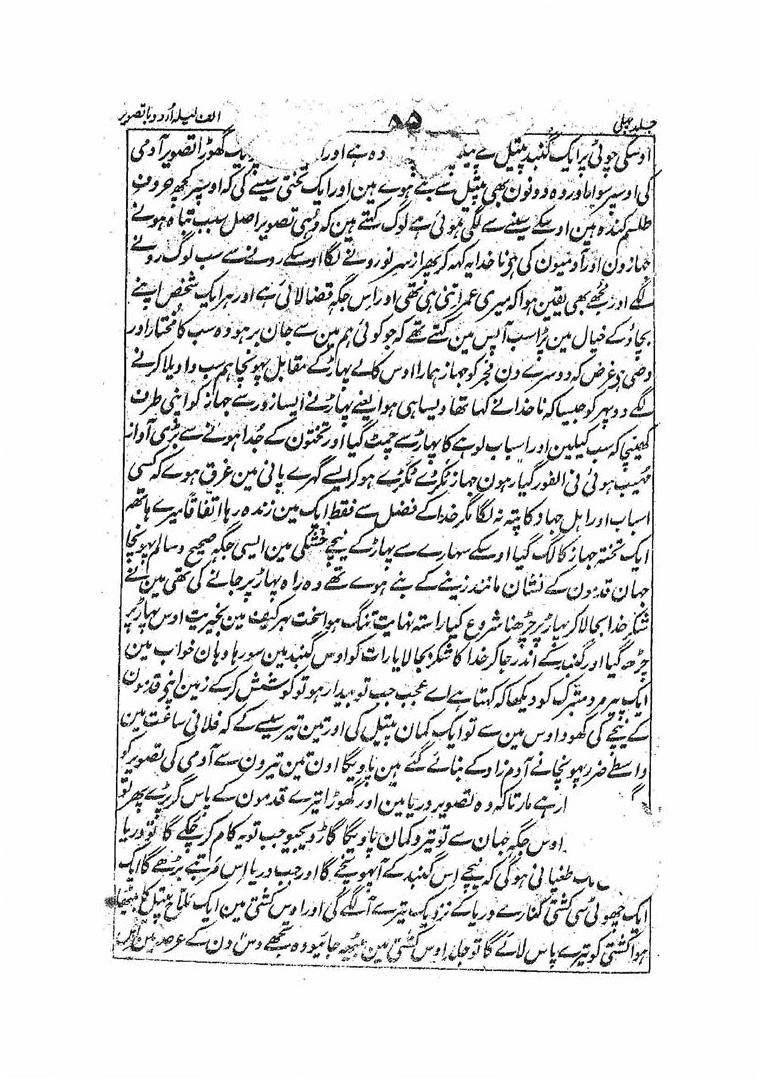 جلد پہلی
۸۵
الف لیلہ اُردو با تصویر
اوسکی چوٹی پر ایک گنبد پیتل سے وہ ہے اور گھوڑا تصویر آدمی
کی اوسپر سوار اور وہ دونون بھی پیتل سے بنے ہوے ہین اور ایک تختی سیسے کی کہ اوسپر کچھ حروف
طلسم کندہ ہین اوسکے سینے سے لگی ہوئی ہے لوگ کہتے ہین کہ وہی تصویر اصل سبب تباہ ہونے
جہازون اور آدمیون کی ہی ناخدا یہ کہہ کر پھر از سر نو رونے لگا اوسکے رونے سے سب لوگ رونے
لگے اور مجھے بھی یقین ہوا کہ میری عمر اتنی ہی تھی اور اس جگہ قضا لائی ہے اور ہر ایک شخص اپنے
بچاؤ کے خیال مین پڑا سب آپس مین کہتے تھے کہ جو کوئی ہم مین سے جان بر ہو وہ سب کا مختار اور
وصی ہو غرض کہ دوسرے دن فجر کو جہاز ہمارا اوس کالے پہاڑ کے مقابل پہونچا ہم سب واویلا کرنے
لگے دوپہر کو جیسا کہ ناخدا نے کہا تھا ویسا ہی ہوا یعنے پہاڑ نے ایسا زور سے جہاز کو اپنی طرف
کھینچا کہ سب کیلین اور اسباب لوہے کا پہاڑ سے چمٹ گیا اور تختون کے جُدا ہونے سے بڑی آواز
مہیب ہوئی فی الفور گیارہون جہاز ٹکڑے ٹکڑے ہو کر ایسے گہرے پانی مین غرق ہوے کہ کسی
اسباب اور اہل جہاز کا پتہ نہ لگا مگر خدا کے فضل سے فقط ایک مین زندہ رہا اتفاقاً میرے ہاتھہ
ایک تختہ جہاز کا لگ گیا اوسکے سہارے سے پہاڑ کے نیچے خشکی مین ایسی جگہ صحیح و سالم پہونچا
جہان قدمون کے نشان مانند زینے کے بنے ہوے تھے وہ راہ پہاڑ پر جانے کی تھی مین نے
شکر خدا بجا لا کر پہاڑ پر چڑھنا شروع کیا راستہ نہایت تنگ ہوا سخت ہر کیف مین بخیریت اوس پہاڑ پر
چڑھ گیا اور گنبد کے اندر جا کر خدا کا شکر بجا لایا رات کو اوس گنبد مین سو رہا وہان خواب مین
ایک پیر مرد متبرک کو دیکھا کہ کہتا ہے اے عجیب جب تو بیدار ہو تو کوشش کر کے زمین اپنے قدمون
کے نیچے کی کھود اوس مین سے تو ایک کمان پیتل کی اور تین تیر سیسے کے کہ فلانی ساعت مین
واسطے ضرر پہونچانے آدم زاد کے بنائے گئے ہین پاویگا اون تین تیرون سے آدمی کی تصویر کو
مارنا کہ وہ تصویر دریا مین اور گھوڑا تیرے قدمون کے پاس گر پڑے پھر تو
اوس جگہ جہان سے تو تیر و کمان پاویگا گاڑ دیجیو جب تو یہ کام کر چکے گا تو دریا
طغیانی ہوگی کہ نیچے اس گنبد کے آ پہونچے گا اور جب دریا اس مرتبے بڑھے گا ایک
ایک چھوٹی سی کشتی کنارے دریا کے نزدیک تیرے آ لگے گی اور اوس کشتی مین ایک ملاح پیتل کا بیٹھا
ہوا کشتی کو تیرے پاس لائے گا تو جلد اوس کشتی مین بیٹھ جائیو وہ تجھے دس دن کے عرصہ مین